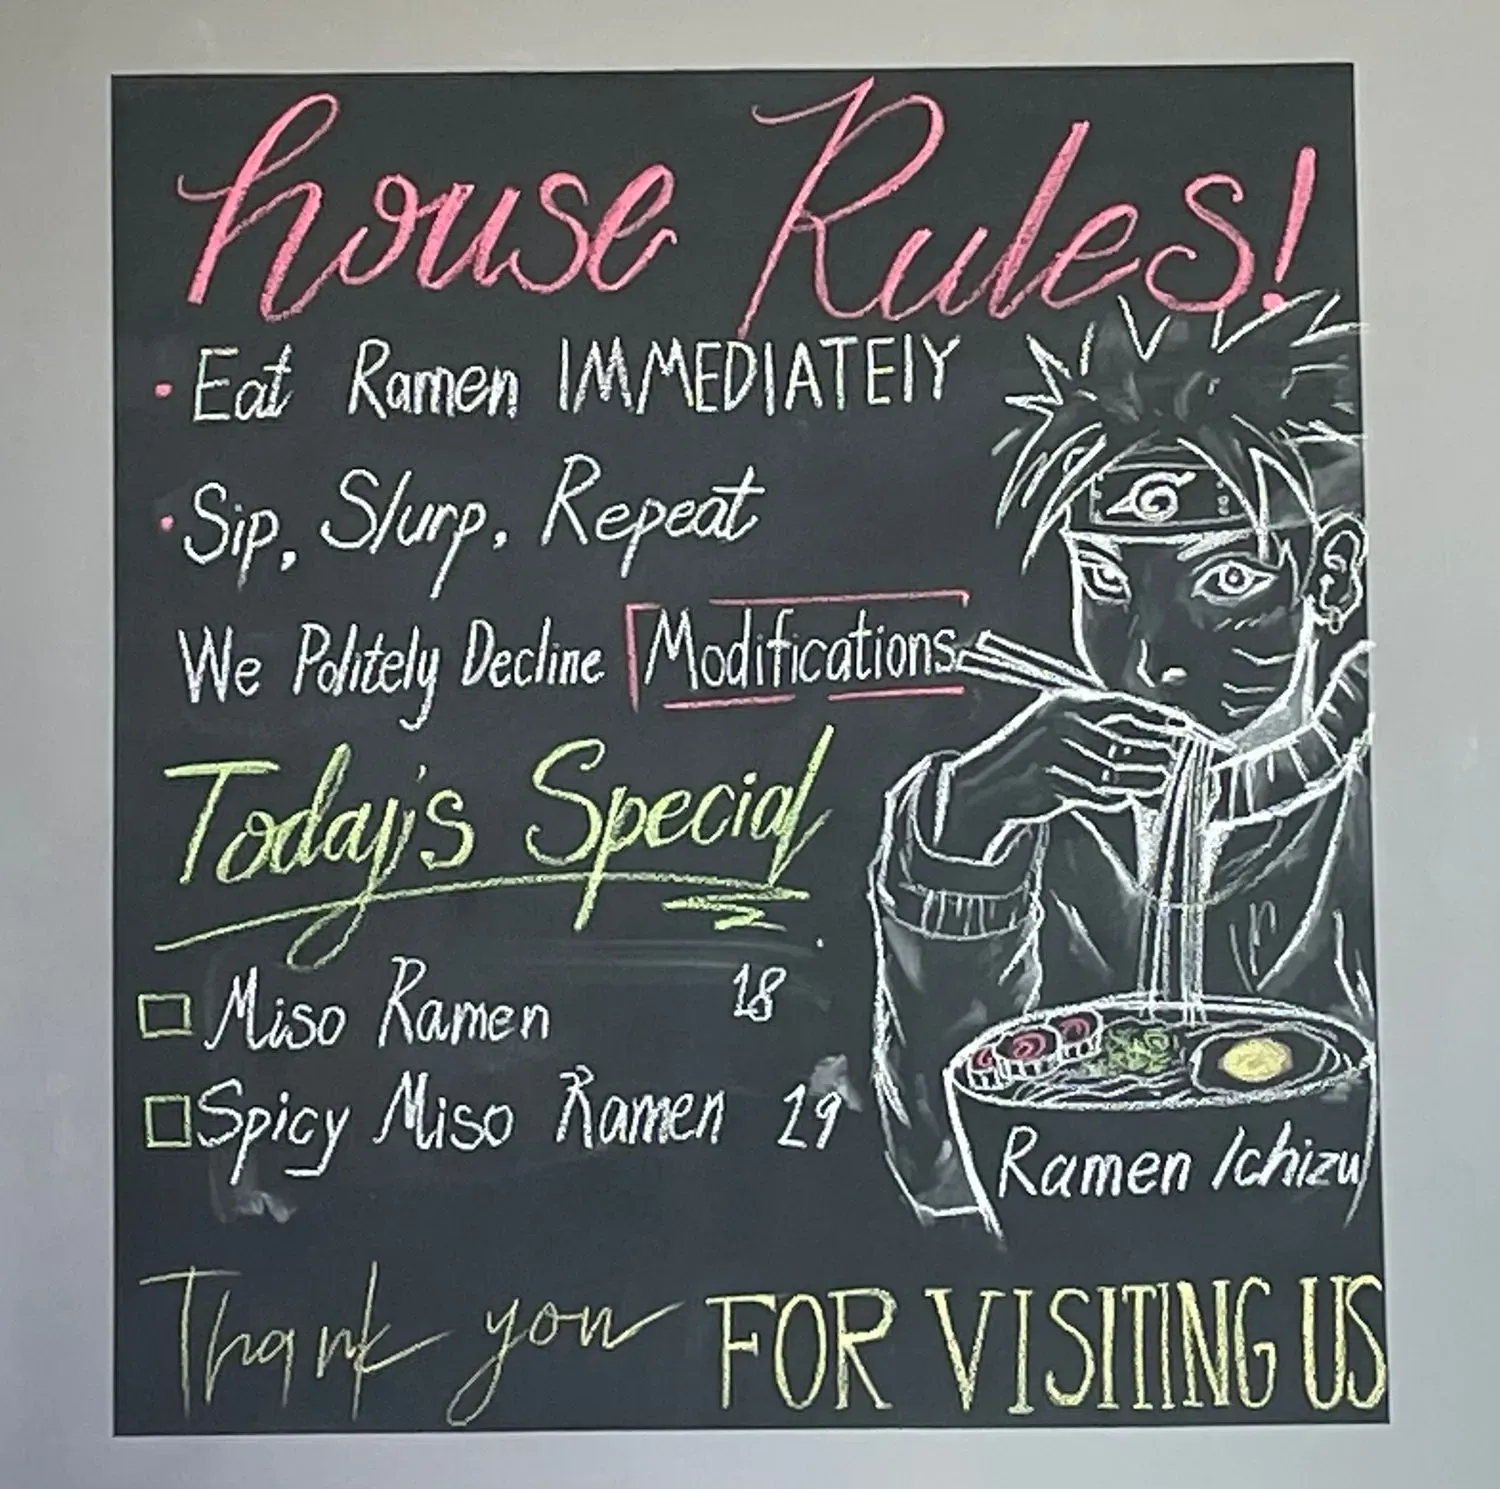 house Rules!
• Eat Ramen IMMEDIATElY
• Sip, Slurp, Repeat
We Politely Decline Modifications
Today's Special
Miso Ramen 18
Spicy Miso Ramen 19
Ramen Ichizu
Thank you FOR VISITING US